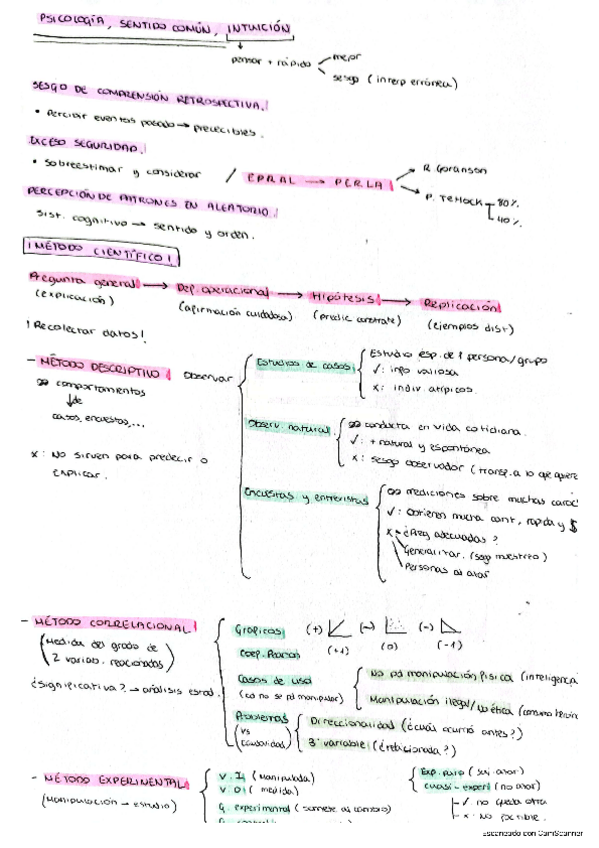 PSICOLOGÍA, SENTIDO COMÚN, INTUICIÓN
pensar + rápido
mejor
sesgo (interp errónea)
SESGO DE COMPRENSIÓN RETROSPECTIVA.
• Percibir eventos pasado → predecibles.
EXCESO SEGURIDAD.
• Sobreestimar y considerar / EPRAL → PERLA
R. Goranson
P. TETLOCK
80%
40%
PERCEPCIÓN DE PATRONES EN ALEATORIO.
Sist. cognitivo → sentido y orden.
¡MÉTODO CIENTÍFICO!
Pregunta general → Def. operacional → Hipótesis → Replicación
(explicación) (afirmación cuidadosa) (predic contrate) (ejemplos dist)
¡Recolectar datos!
- MÉTODO DESCRIPTIVO Observar
comportamientos
↓ de
casos, encuestas,...
x: No sirven para predecir o
explicar.
Estudios de casos
Estudio esp. de 1 persona/grupo
✓: info valiosa
x: indiv. atípicos.
Observ. natural
conducta en vida cotidiana.
✓: + natural y espontánea
x: sesgo observador (transf. a lo que quiere
Encuestas y entrevistas
mediciones sobre muchas
✓: Obtienen mucha cant, rapida y $
x → ¿Preg adecuadas?
Generalizar. (sesgo muestreo)
Personas al azar
- MÉTODO CORRELACIONAL
(Medida del grado de
2 variab. relacionadas)
¿Significativa? → análisis estad.
Gráficos (+) (~) (-)
Coef. Pearson (+1) (0) (-1)
Casos de uso
(cd no se pd manipular)
No pd manipulación física (inteligencia
Manipulación ilegal/No ética
Problemas
(vs
causalidad)
Direccionalidad (¿cuál ocurrió antes?)
3ª variable (¿relacionada?)
- MÉTODO EXPERIMENTAL
(Manipulación → estudio)
V. I (Manipulada)
V. D (medida)
G. experimental
Exp. puro (suj. azar)
cuasi-exper (no azar)
✓ no queda otra
x: No posible.
Escaneado con CamScanner